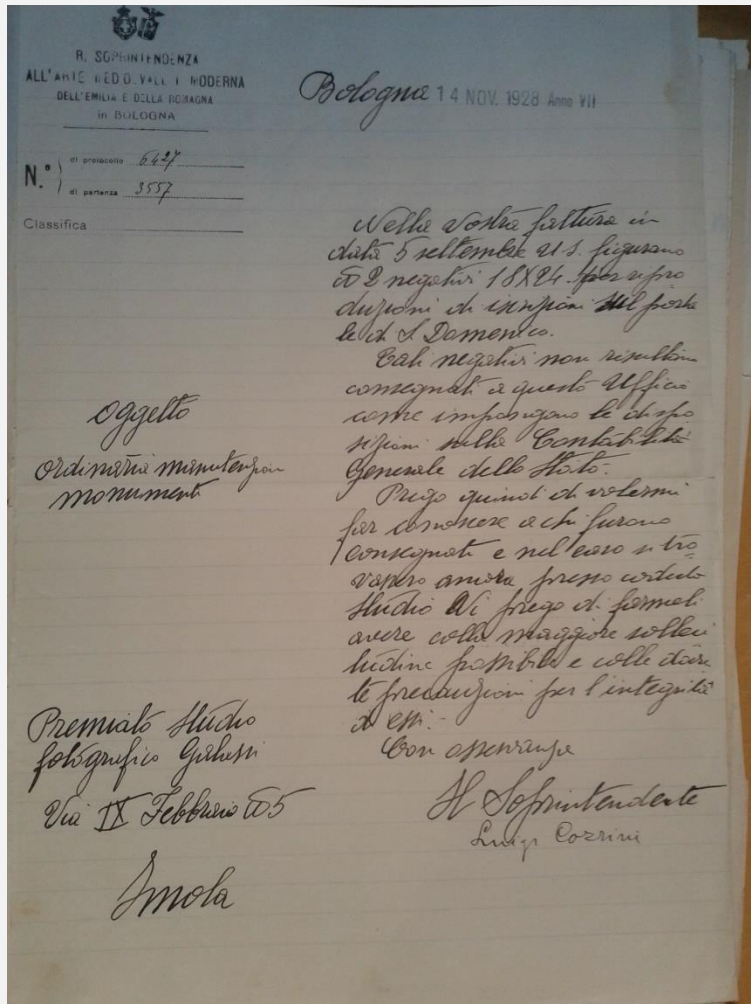 R. SOPRINTENDENZA
ALL'ARTE MEDIOEVALE E MODERNA
DELL'EMILIA E DELLA ROMAGNA
in BOLOGNA
N.° di protocollo 6427
di partenza 3557
Classifica
Bologna 14 NOV. 1928 Anno VII
Oggetto
Ordinaria manutenzione
monumenti
Nella vostra fattura in
data 5 settembre u s. figurano
N 2 negativi 18X24 per ripro
duzioni di iscrizioni sul porta
le di S Domenico.
Tali negativi non risultano
consegnati a questo Ufficio
come impongono le dispo
sizioni sulla Contabilità
Generale dello Stato.
Prego quindi di volermi
far conoscere a chi furono
consegnati e nel caso si tro
vassero ancora presso codesto
Studio Vi prego di farmeli
avere colla maggiore solleci
tudine possibile e colle dovu
te precauzioni per l'integrità
di essi.-
Con osservanza
Il Soprintendente
Luigi Corsini
Premiato Studio
fotografico Galassi
Via IX Febbraio N 5
Imola